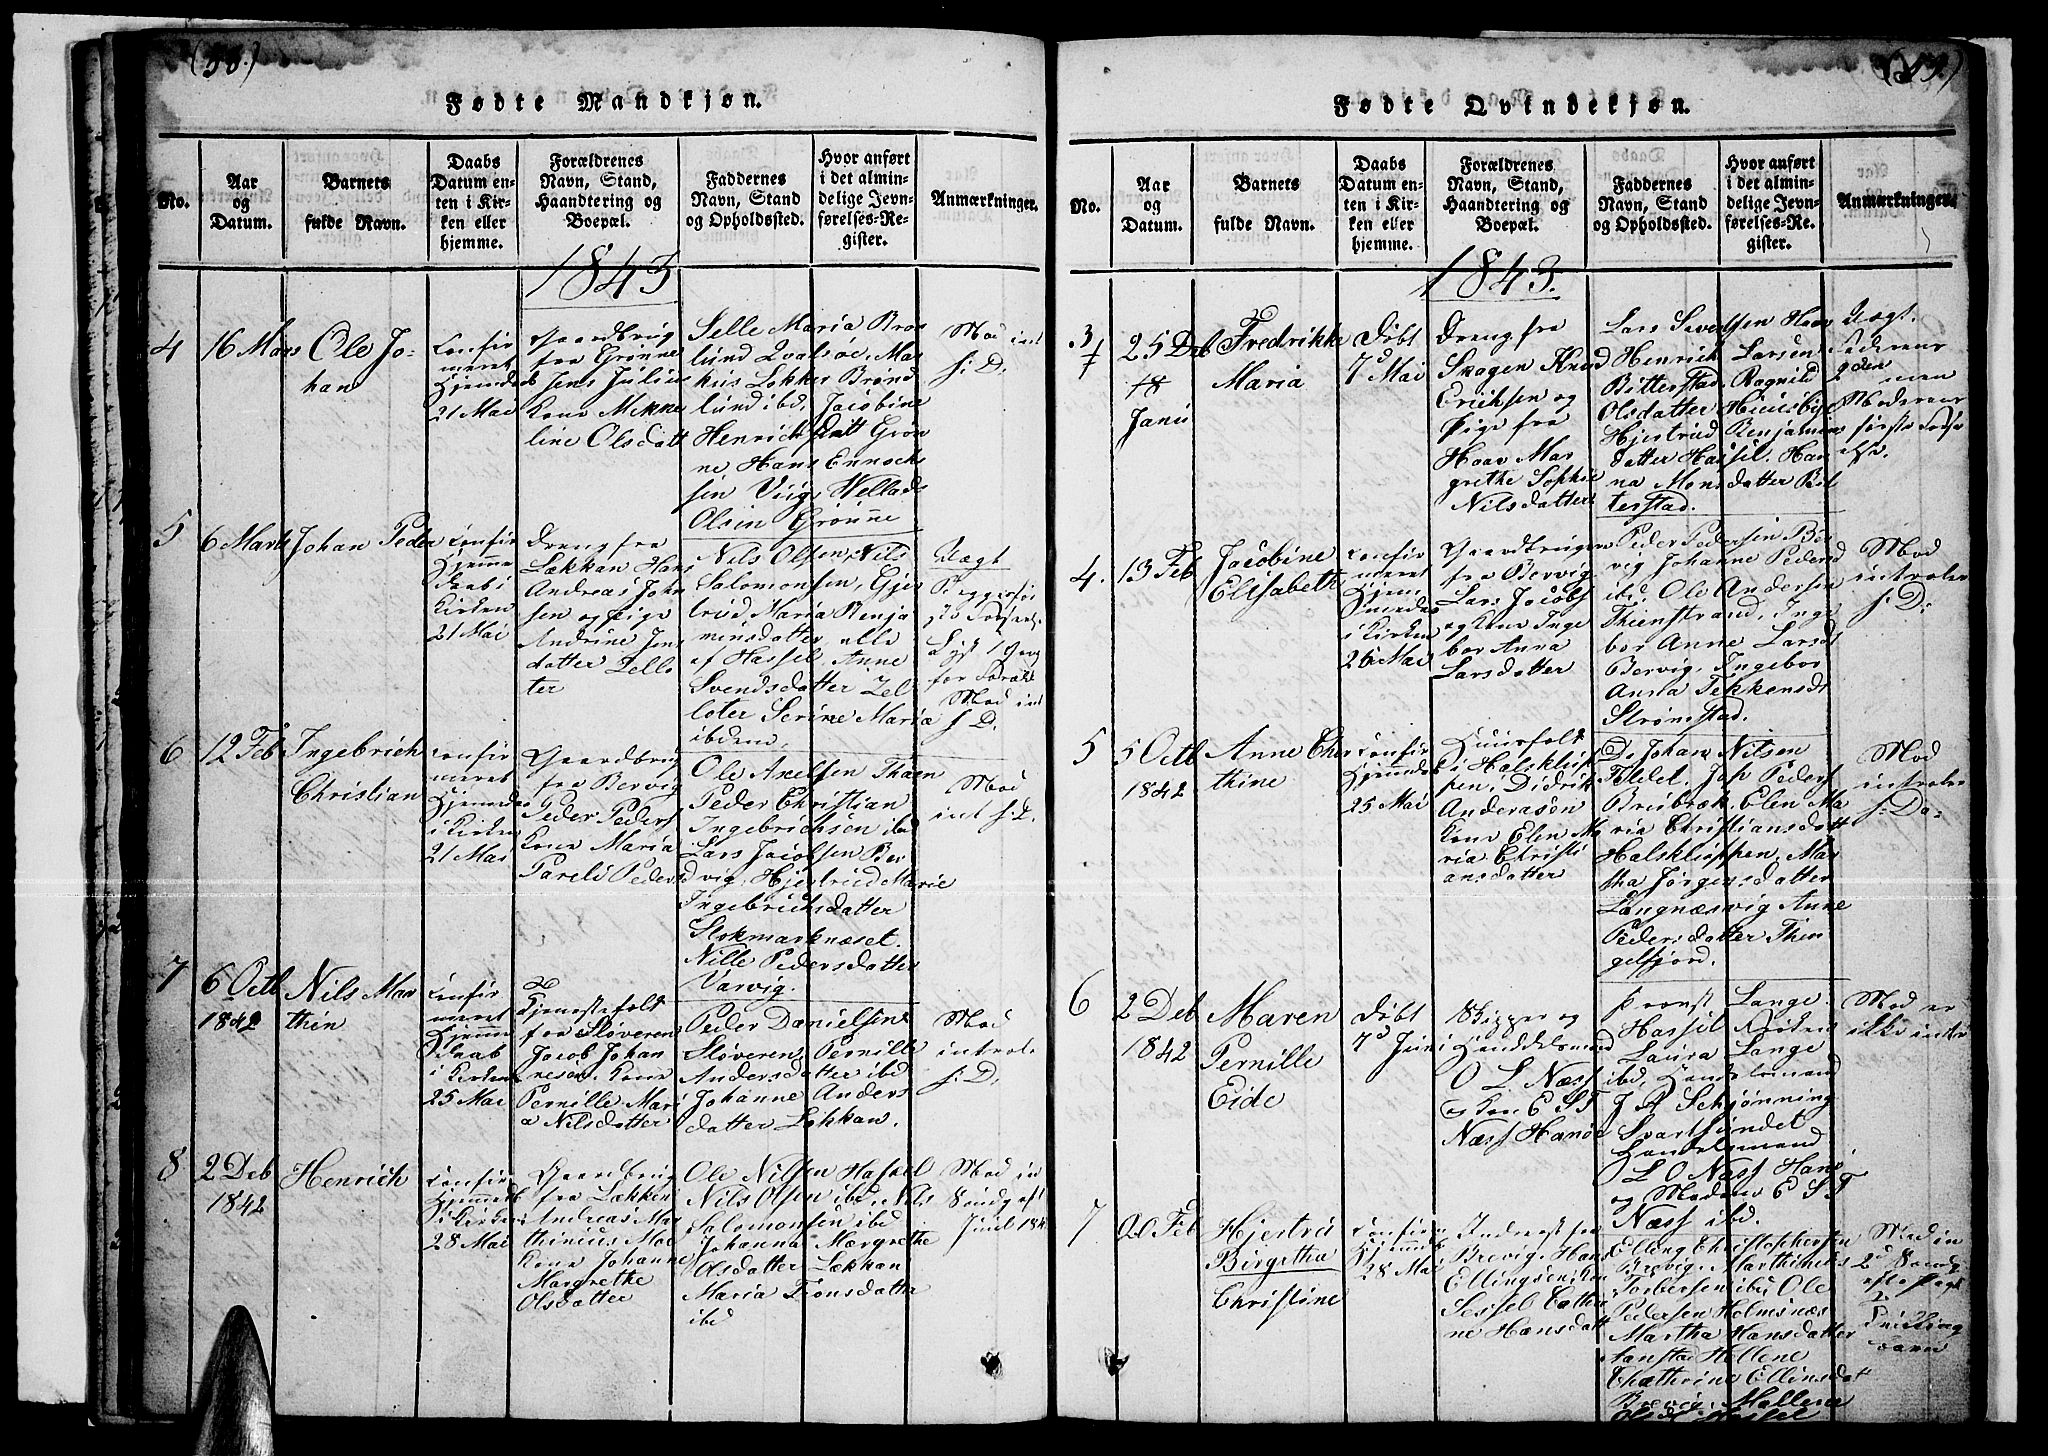 (58.)
Fødte Mandkjøn.
No.
Aar
og
Datum.
Barnets
fulde Navn.
Daabs
Datum en-
ten i Kir-
ken eller
hjemme.
Forældrenes
Navn, Stand,
Haandtering og
Boepæl.
Faddernes
Navn, Stand
og Opholdssted.
Hvor anført
i det almin-
delige Jevn-
førelses-Re-
gister.
Anmærkninger.
1843
4
16 Mars
Ole Jo-
han
Confir
meret
Hjemmed
21 Mai
Gaardbrug
fra Grønne
Jens Julius
Kone Mekne
line Olsdatt
Selle Maria Bros
lund Qvalsøe, Mar
kus Lokker Brønd
lund ibd, Jacobine
Henrichsdatt Grøn
ne Hans Ennochs
sen Viig, Hellads
Olsen Grønne
Mod int
s: D.
5
6 Marts
Johan Peder
Confir
Hjemme
daab i
Kirken
21 Mai
Dreng fra
Løkkan Hans
Andreas John
sen og Pige
Andrine Jens
datter Zello
ter
Nils Olsen, Nils
Salomonsen, Gjer
trud Maria Benja
minsdatter, alle
af Hassel, Anne
Svendsdatter Zel
loter Serine Maria
ibdem,
Uægt
Mod int
s. D.
6
12 Feb
Ingebrich
Christian
Confir
meret
Hjemmeda
i Kirken
21 Mai
Gaardbrug
fra Bervig
Peder Peders
Kone Maria
Pareli Pedersd
Ole Axelsen Thøen
Peder Christian
Ingebrichsen ibd
Lars Jacobsen Ber
vig, Hjertrud Marie
Ingebrichsdatter
Slokmarknæset.
Nille Pedersdatter
Varvig.
Mod
int s: D.
7
6 Octb
1842
Nils Mar
thin
Confir
meret
Hjemme
daab
i Kirken
25 Mai
Tjenestefolk
fra Sløveren
Jacob Johan
nesen, Kone
Pernille Mari
a Nilsdatter
Peder Danielsen
Sløveren, Pernille
Andersdatter ibd
Johanne Anders
datter Løkkan.
Mod
introle
s: D.
8
2 Deb
1842
Henrich
Confir
Hjemmed
i Kirken
28 Mai
Gaardbrug
fra Løkken
Andreas Mar
thinius Mai
Kone Johanne
Margrethe
Olsdatter
Ole Nilsen Hassel
Nils Olsen ibd, Nils
Salomonsen ibd
Johanna Margrethe
Olsdatter Løkkan
Maria Zionsdatter
ibd
Mod in
Søndg eft
Juul 184
(59.)
Fødte Qvindekjøn.
No.
Aar
og
Datum.
Barnets
fulde Navn.
Daabs
Datum en-
ten i Kir-
ken eller
hjemme.
Forældrenes
Navn, Stand,
Haandtering og
Boepæl.
Faddernes
Navn, Stand
og Opholdssted.
Hvor anført
i det almin-
delige Jevn-
førelses-Re-
gister.
Anmærkninger.
1843.
3
25 Deb
18
Janu
Fredrikke
Maria
Døbt
7d Mai
Dreng fra
Skogen Knud
Eriksen og
Pige fra
Haar Mar
grethe Sophie
Nilsdatter
Lars Svendsen Haar
Henrich Larsen
Bitterstad, Ragnild
Olsdatter Huusbye
Hjertrud Benjamins
datter Hassel. Han
na Monsdatter Bit
terstad.
Uægt.
Faderens
men
Moderens
første
4.
13 Feb
Jacobine
Elisabeth
Confir
meret
Hjem
i Kirken
26 Mai
Gaardbruger
fra Bervig
Lars Jacobs
og Kone Inge
bor Anna
Larsdatter
Peder Pedersen Ber
vig Johanne Pedersd
ibid, Ole Andersen
Thienstrand, Inge
bor Anne Larsd
Bervig, Ingebor
Anna Tekkensd
Strømstad.
Mod
introler
s: D:
5
5 Octb
1842
Anne Cha
thine
Confir
Hjemmed
25 Mai
Huusfolk
i Halskløp
pen, Didrik
Anderasen
Kone Elen Ma
ria Christi
ansdatter
Johan Nilsen
Feldet, Joh Peders
Breibræk, Elen Ma
ria Christiansdatt
Halskløppen, Mar
tha Jørgensdatter
Langnæsvig Anne
Pedersdatter Thin
gelfjord.
Mod
introler
s: Da-
6
2 Deb
1842
Maren
Pernille
Eide
Døbt
7d Juni
Skipper og
Handelsmand
O L Næss
og Kone E S T
Næss Hanøe
Provst Lange
Hassel Frøken
Laura Lange
ibd, Handelsmand
J A Schjønning
Svartsundet
Handelsmand
O L O Næss Hanø
og Madam E S T
Næss ibd.
Mod er
ikke intro
7
20 Feb
Hjertru
Birgitha
Christine
Confir
Hjemmd
28 Mai
Inderst fra
Brevig, Hans
Ellingsen Kon
Sessel Cathri
ne Hansdatt
Elling Christophersen
Brevig, Marthinus
Torbersen ibd Ole
Pedersen Holmsnæs
Martha Hansdatter
Aanstad Hellene
Chathrine Ellinsdat
Brevig, Mallena
Olsd Hassel
Mod in
2d Søndg
efter
Tvilling
børn